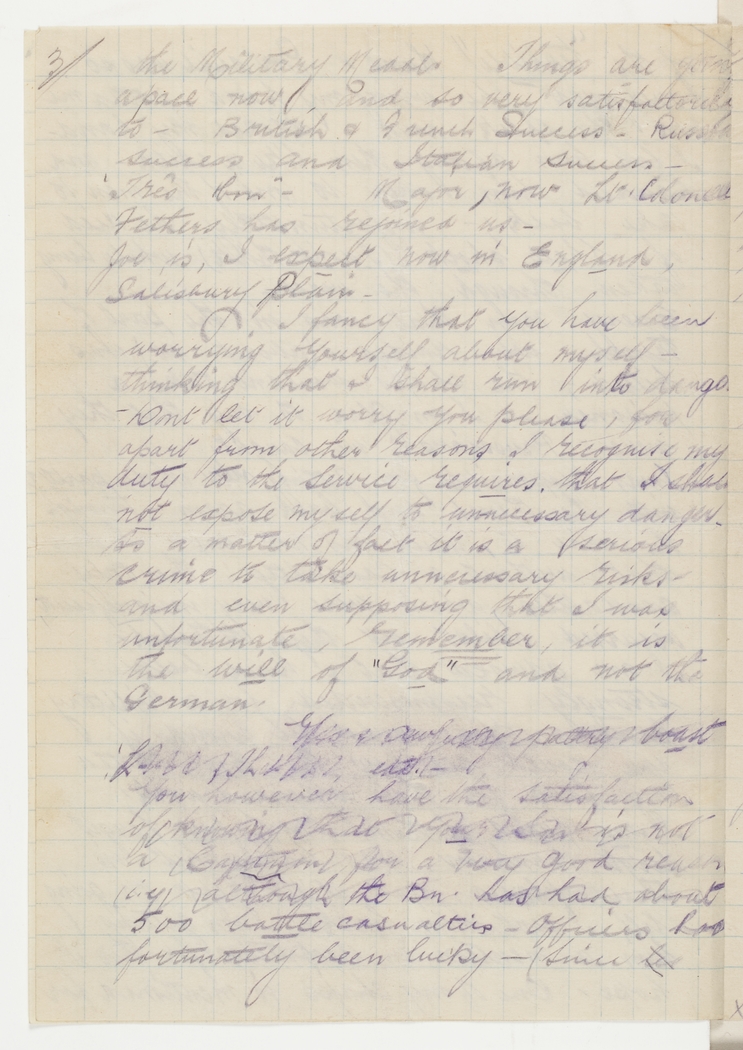 3/ the Military Medal. Things are going
apace now, and so very satisfactorily
to- British & French Success - Russian
success and Italian success -
'Très bon' - Major, now Lt. Colonel
Fethers has rejoined us -
Joe is, I expect now in England,
Salisbury Plain -
I fancy that you have been
worrying yourself about myself -
thinking that I shall run into dange
- Dont let it worry you please, for
apart from other reasons I recognise my
duty to the Service requires that I shall
not expose myself to unnecessary danger.
As a matter of fact it is a serious
crime to take unnecessary risks -
and even supposing that I was
unfortunate, remember, it is
the will of "God" and not the
German.
boast
etc. -
You however have the satisfaction
of knowing that your is not
a for a very good reason
i.e., although the Bn. has had about
500 battle casualties - Officers have
fortunately been lucky - (since